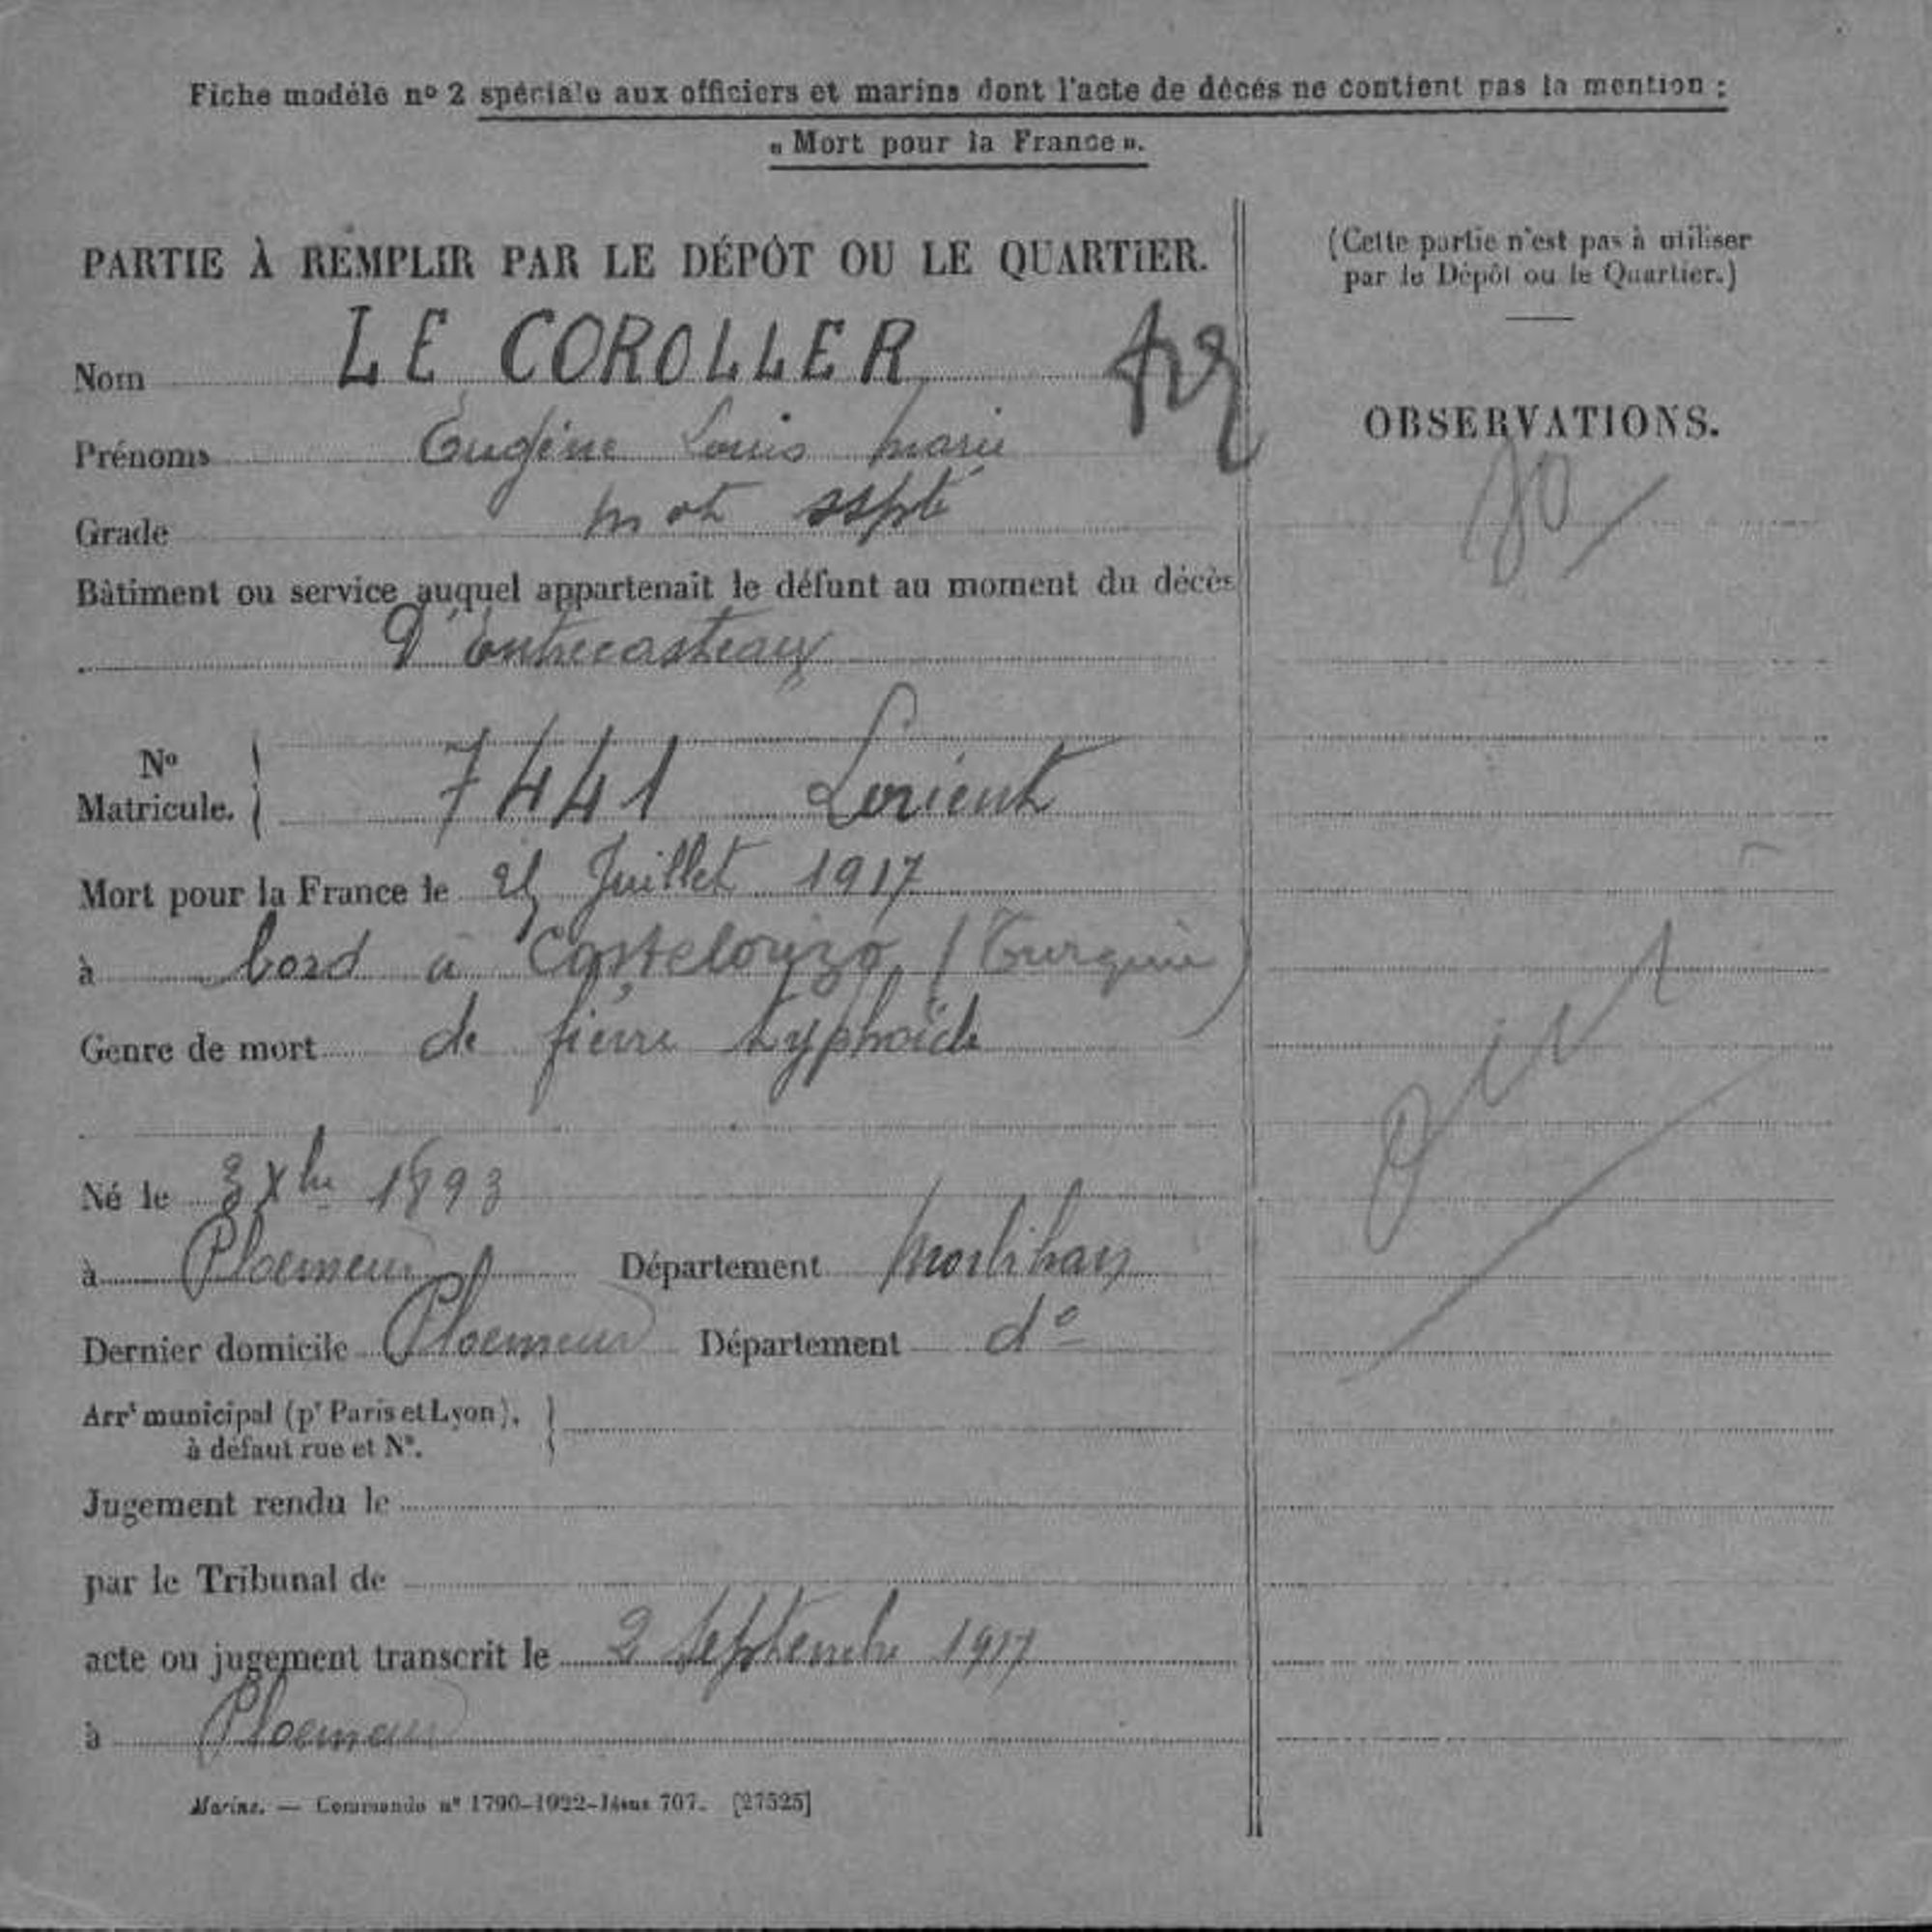 Fiche modèle nº 2 spéciale aux officiers et marins dont l'acte de décès ne contient pas la mention :
« Mort pour la France ».
PARTIE À REMPLIR PAR LE DÉPÔT OU LE QUARTIER.
Nom LE COROLLER
Prénoms Eugène Louis Marie
Grade mot sspté
Bâtiment ou service auquel appartenait le défunt au moment du décès
D'Entrecasteaux
Nº Matricule. 7441 Lorient
Mort pour la France le Juillet 1917
à bord à Castelorizo (Turquie)
Genre de mort de fièvre typhoïde
Né le 3 Xbre 1893
à Ploemeur Département Morbihan
Dernier domicile Ploemeur Département dº
Arrt municipal (pr Paris et Lyon),
à défaut rue et Nº.
Jugement rendu le
par le Tribunal de
acte ou jugement transcrit le 2 Septembre 1917
à Ploemeur
Marine. — Commande nº 1790-1922-Jésus 707. [27525]
(Cette partie n'est pas à utiliser
par le Dépôt ou le Quartier.)
OBSERVATIONS.